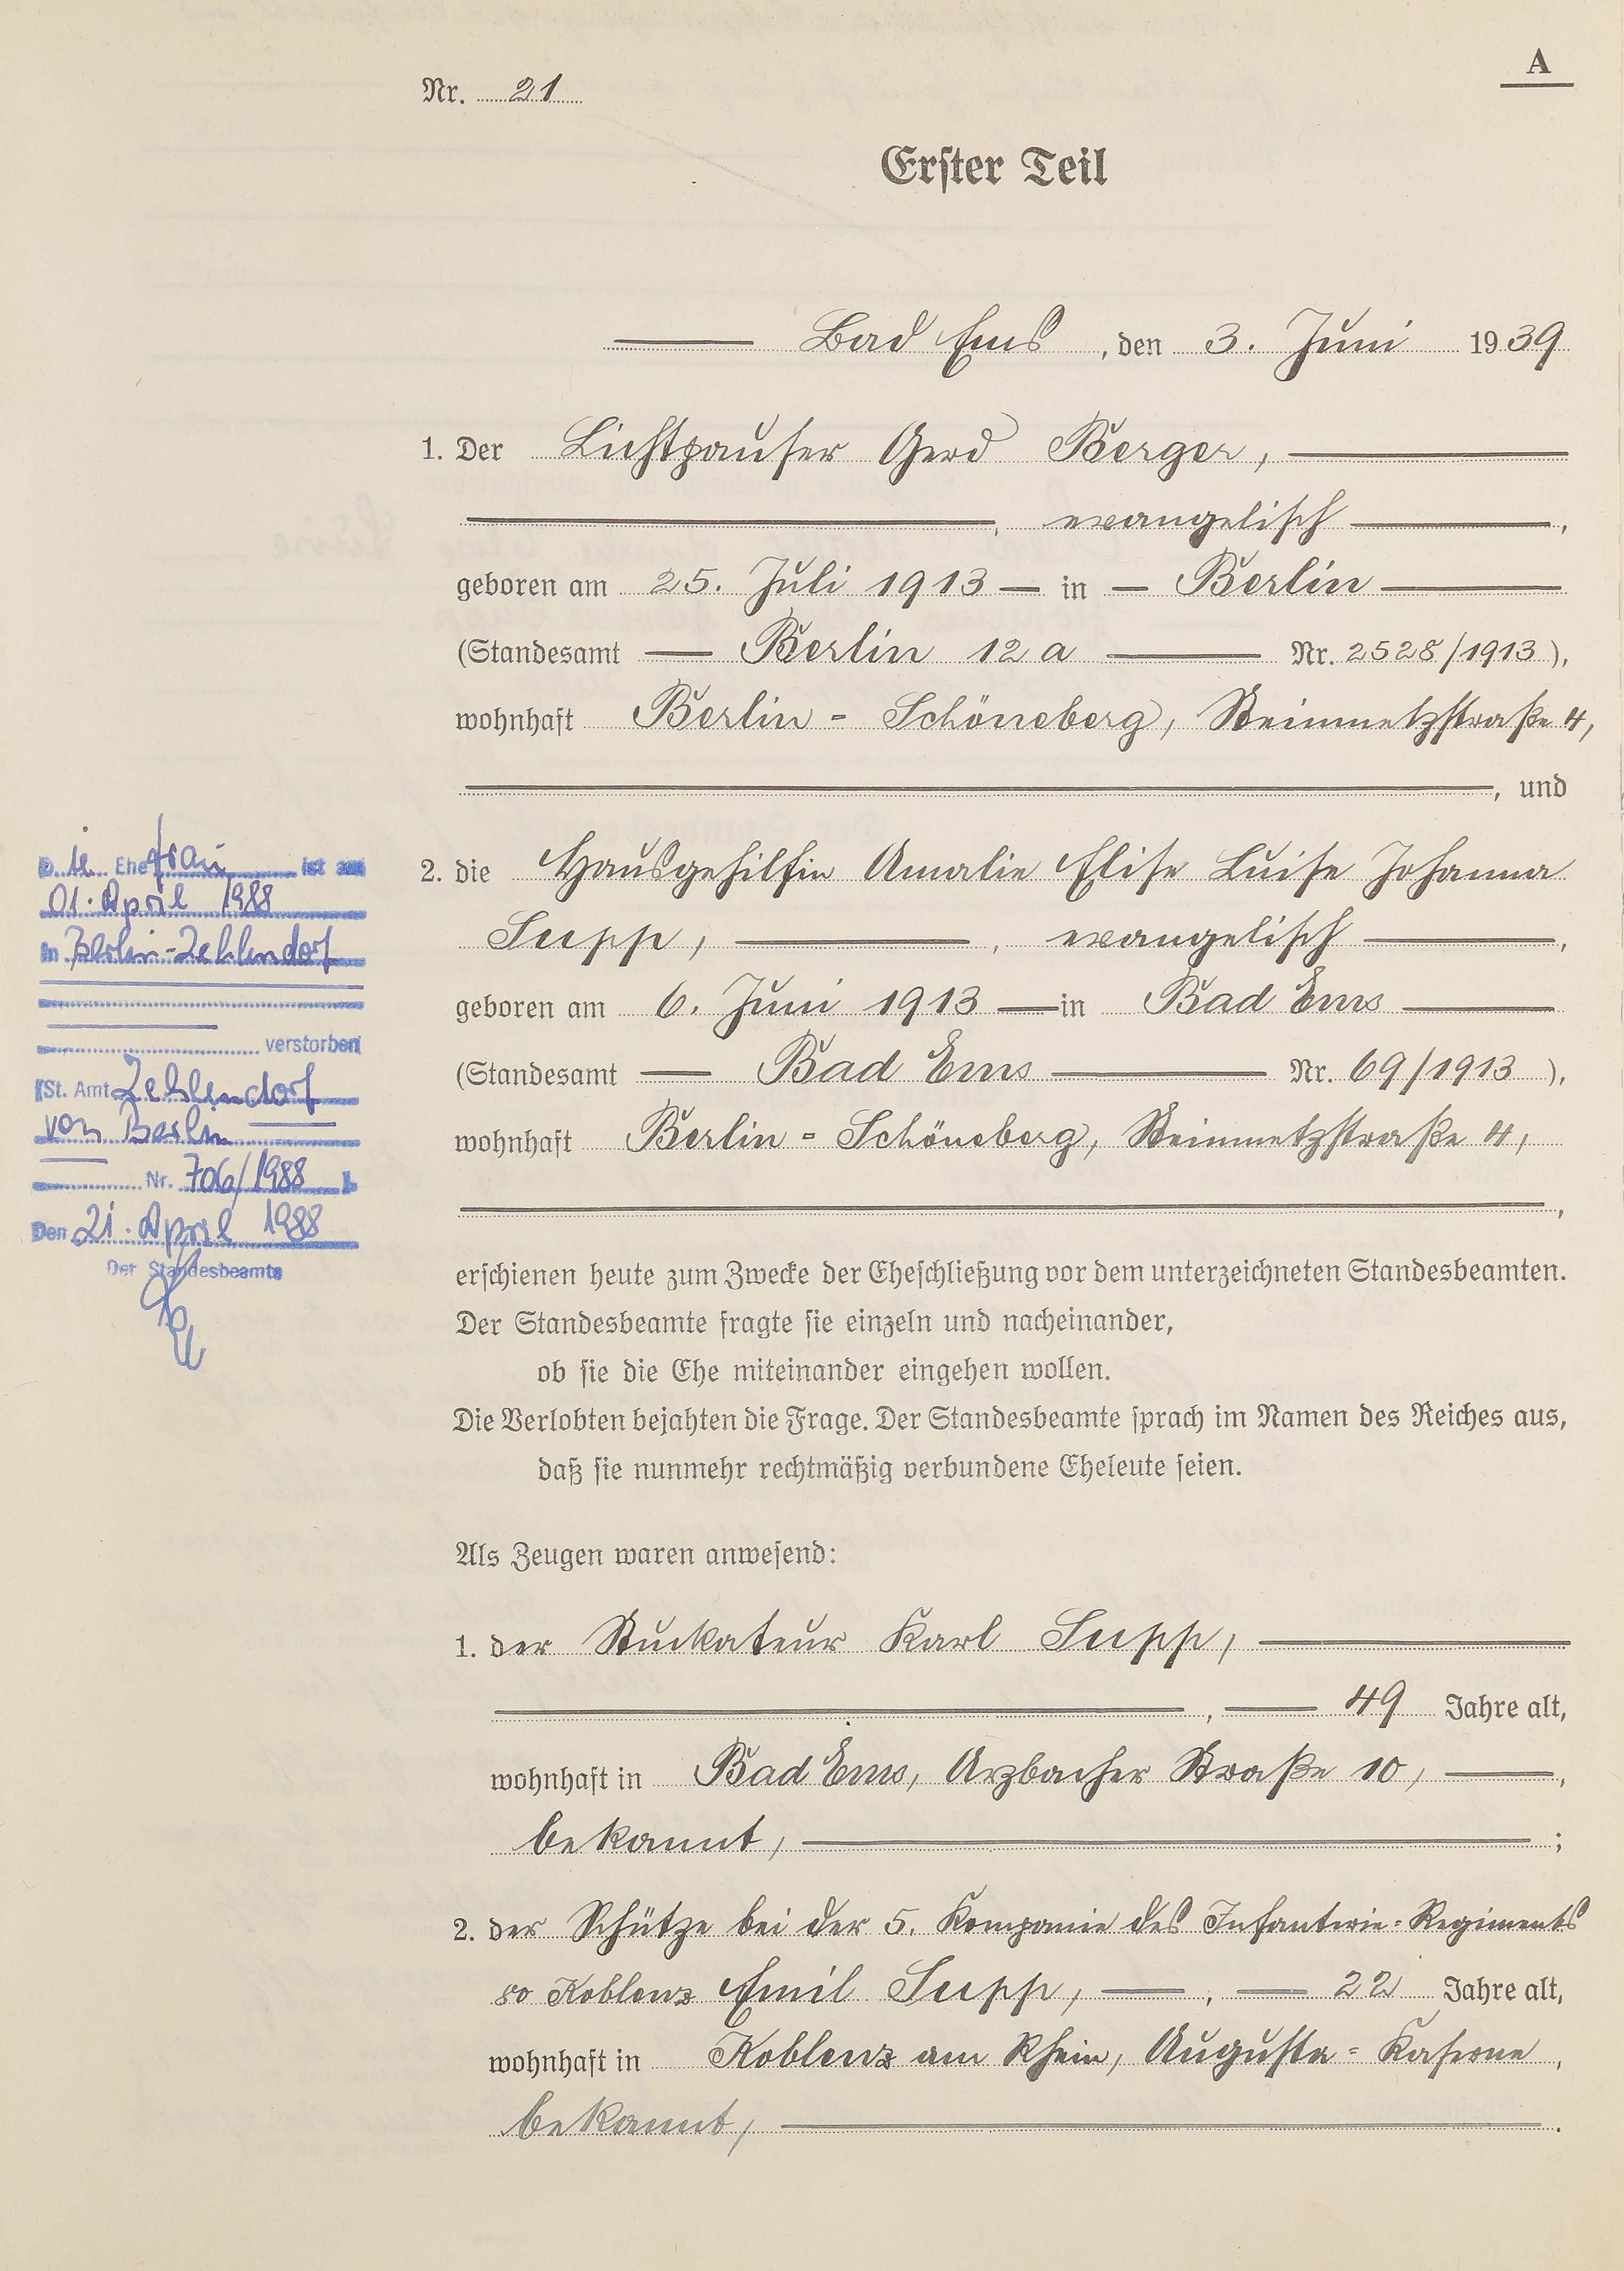 A
Nr. 21
Erster Teil
Bad Ems, den 3. Juni 1939
1. Der Lichtpauser Gerd Berger,
, evangelisch ,
geboren am 25. Juli 1913 — in — Berlin
(Standesamt — Berlin 12a — Nr. 2528/1913),
wohnhaft Berlin-Schöneberg, Steinmetzstraße 4,
, und
2. die Hausgehilfin Amalie Elise Luise Johanna
Supp, — , evangelisch — ,
geboren am 6. Juni 1913 — in Bad Ems —
(Standesamt — Bad Ems — Nr. 69/1913),
wohnhaft Berlin-Schöneberg, Steinmetzstraße 4,
,
erschienen heute zum Zwecke der Eheschließung vor dem unterzeichneten Standesbeamten.
Der Standesbeamte fragte sie einzeln und nacheinander,
ob sie die Ehe miteinander eingehen wollen.
Die Verlobten bejahten die Frage. Der Standesbeamte sprach im Namen des Reiches aus,
daß sie nunmehr rechtmäßig verbundene Eheleute seien.
Als Zeugen waren anwesend:
1. der Stuckateur Karl Supp, —
, — 49 Jahre alt,
wohnhaft in Bad Ems, Arzbacher Straße 10, — ,
bekannt, — ;
2. der Schütze bei der 5. Kompanie des Infanterie-Regiments
80 Koblenz Emil Supp, — , — 22 Jahre alt,
wohnhaft in Koblenz am Rhein, Augusta-Kaserne ,
bekannt, — .
Die Ehefrau ist am
01. April 1988
in Berlin-Zehlendorf
verstorben
(St. Amt Zehlendorf
von Berlin
Nr. 706/1988 )
Den 21. April 1988
Der Standesbeamte